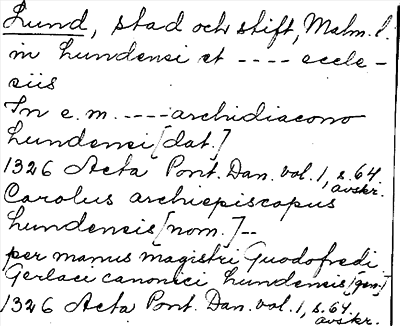 Lund, stad och stift, Malm. l.
in Lundensi et ---- eccle-
siis
In e. m. ---- archidiacono
Lundensi [dat.]
1326 Acta Pont. Dan. vol. 1, s. 64
avskr.
Carolus archiepiscopus
Lundensis [nom.] --
per manus magistri Guodofredi
Gerlaci canonici Lundensis [gen.]
1326 Acta Pont. Dan. vol. 1, s. 64.
avskr.